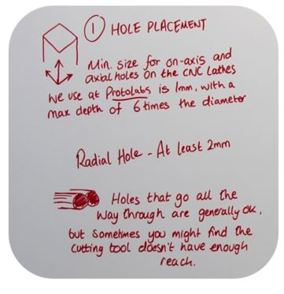 1 HOLE PLACEMENT
Min. size for on-axis and
axial holes on the CNC lathes
we use at Protolabs is 1mm, with a
max depth of 6 times the diameter
Radial Hole - At least 2mm
Holes that go all the
way through are generally OK,
but sometimes you might find the
cutting tool doesn't have enough
reach.